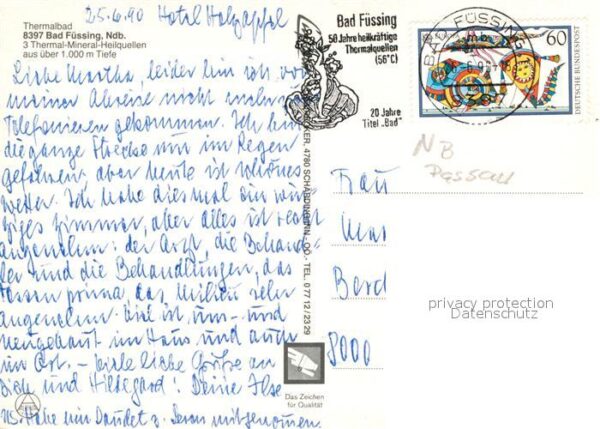 25.6.90 Hotel Holzapfel
Thermalbad
8397 Bad Füssing, Ndb.
3 Thermal-Mineral-Heilquellen
aus über 1.000 m Tiefe
Liebe Martha, leider bin ich vor
meiner Abreise nicht mehr zum
Telefonieren gekommen. Ich bin
die ganze Strecke nur im Regen
gefahren, aber heute ist schönes
Wetter. Ich habe diesmal ein win-
ziges Zimmer, aber alles ist recht
angenehm: der Arzt, die Behand-
ler und die Behandlungen, das
Essen prima, das Milieu sehr
angenehm. Viel ist um- und
neugebaut im Haus und auch
im Ort. - Viele liebe Grüße an
Dich und Hildegard! Deine Ilse
PS. Habe ein Daudet z. Lesen mitgenommen
Bad Füssing
50 Jahre heilkräftige
Thermalquellen
(56°C)
20 Jahre
Titel „Bad"
BAD FÜSSING
60
DEUTSCHE BUNDESPOST
NB
Passau
4780 SCHÄRDING/INN - OÖ - TEL. 0 77 12 / 23 29
Frau
8000
privacy protection
Datenschutz
Das Zeichen
für Qualität